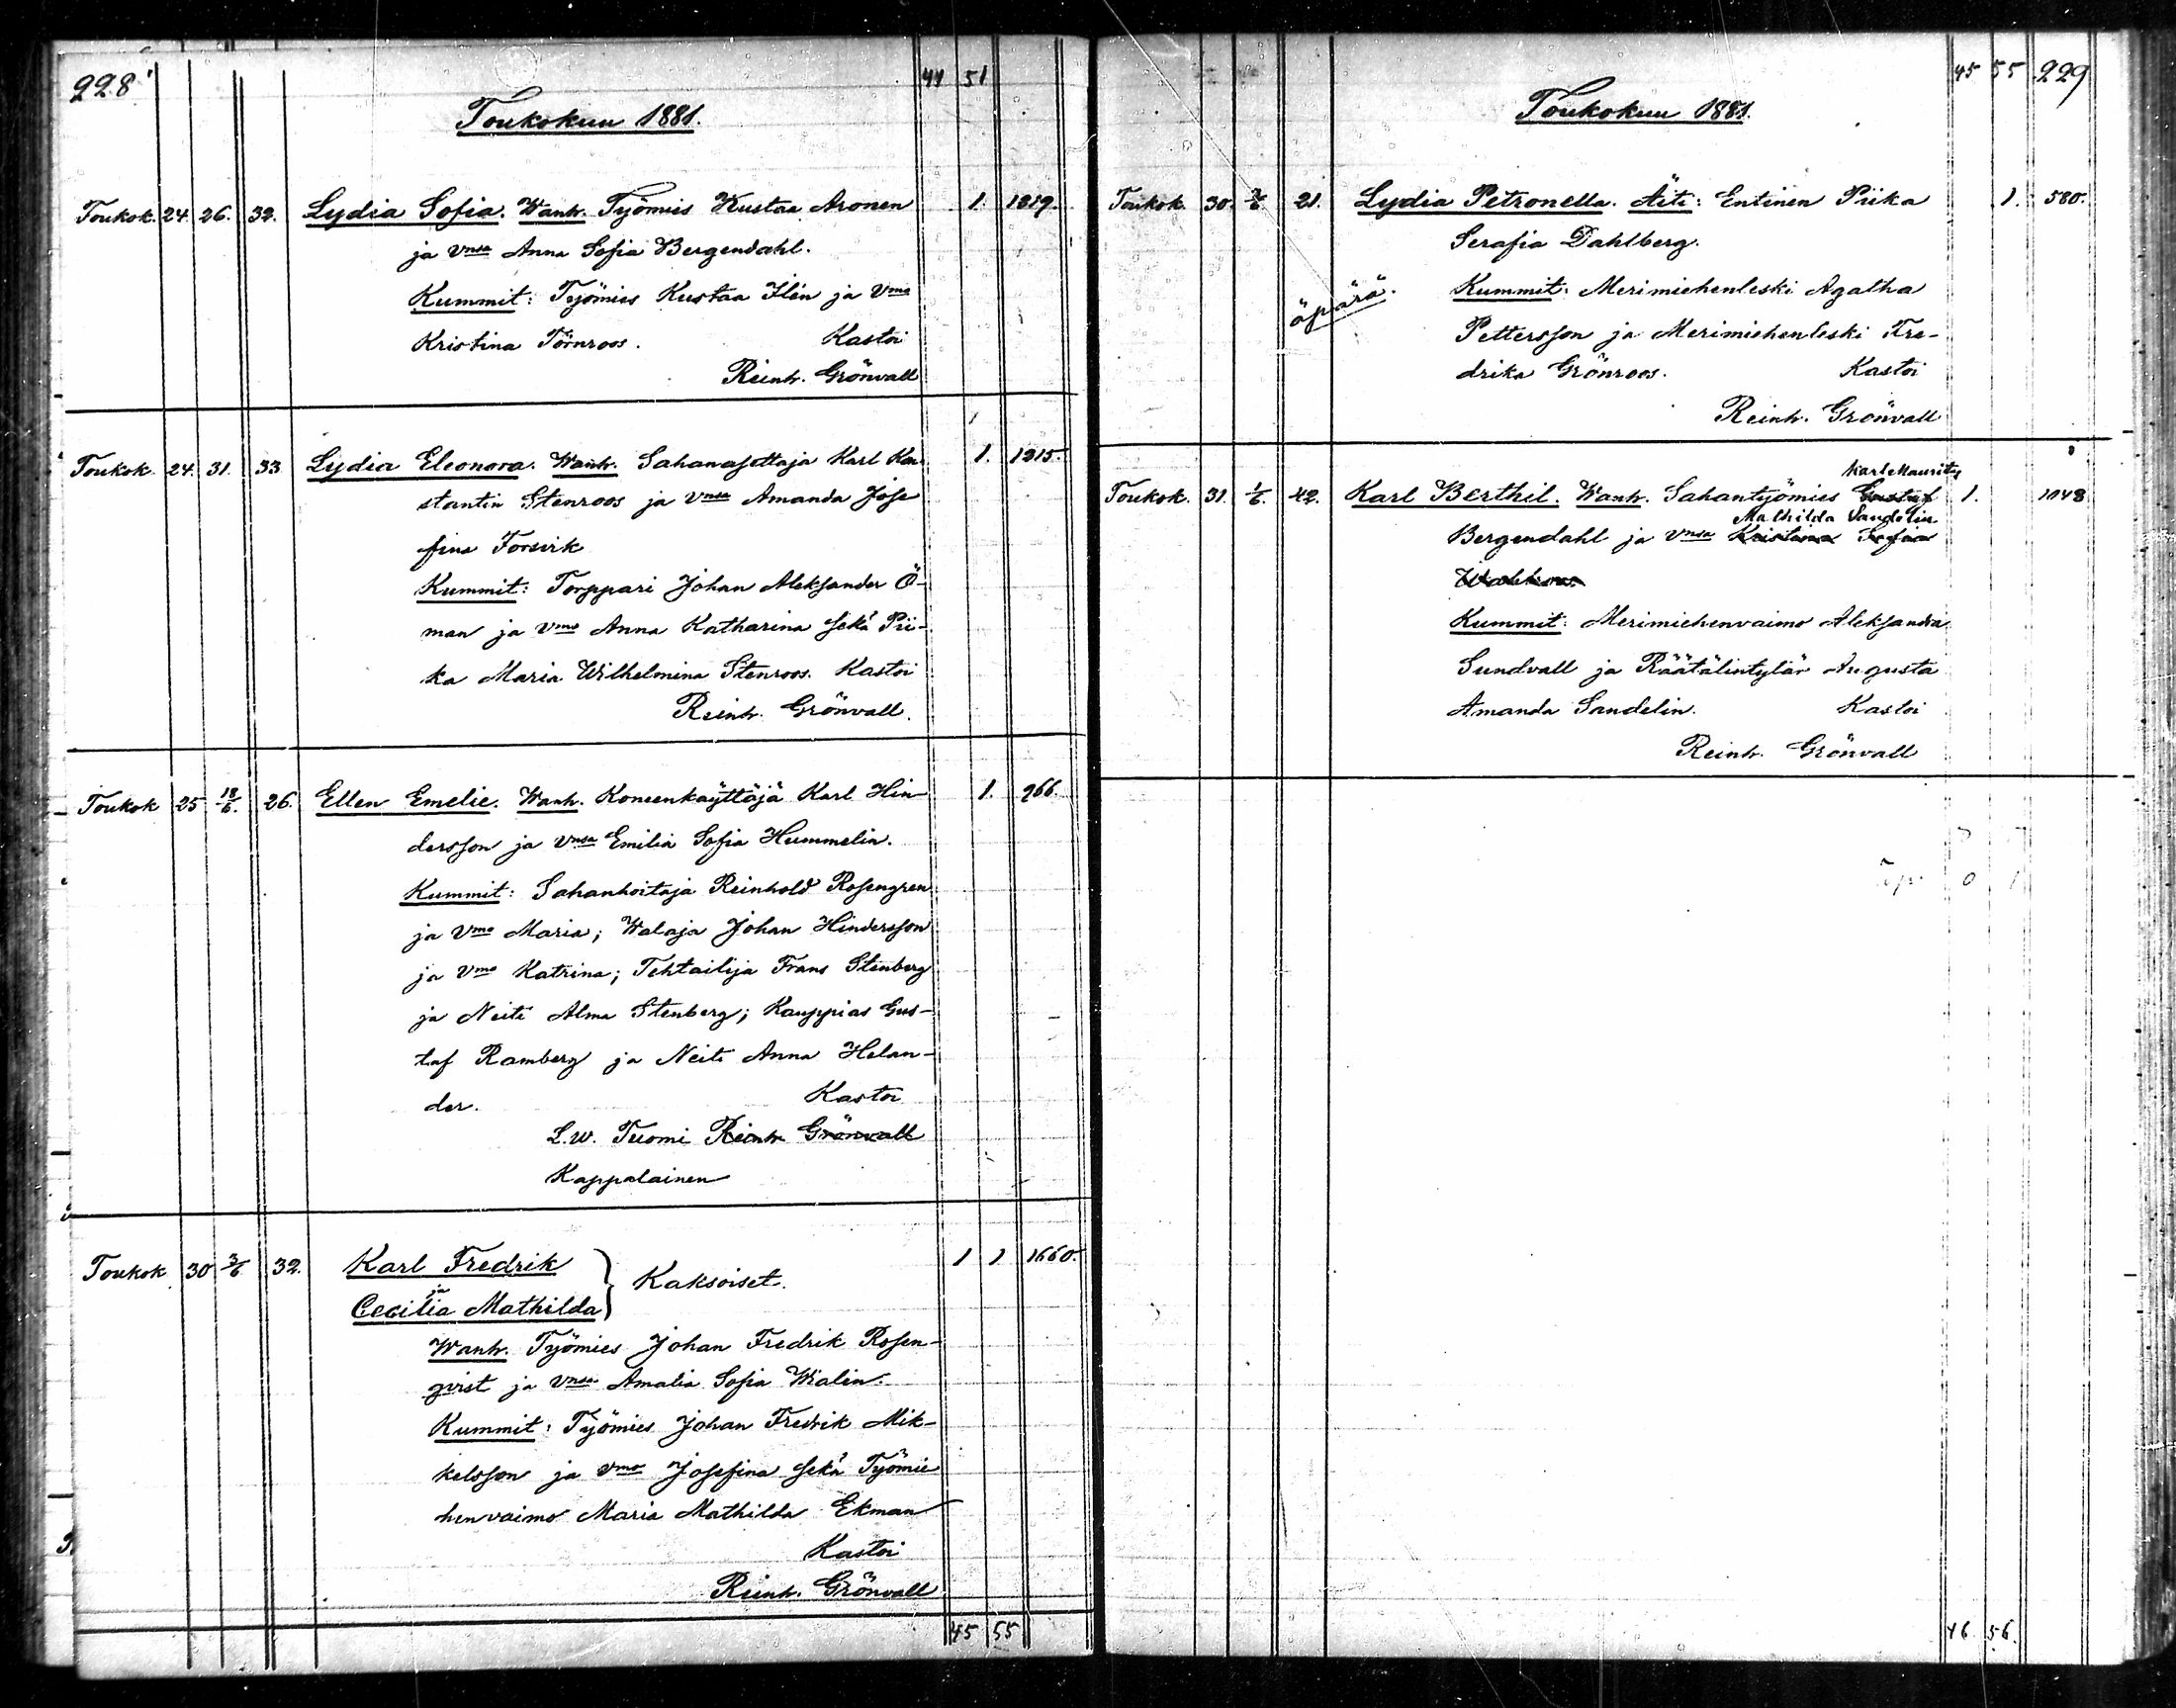 228
44 51
Toukokuu 1881.
Toukok. 24. 26. 32. Lydia Sofia. Wanh. Työmies Kustaa Aronen 1. 1219.
ja Vnsa Anna Sofia Bergendahl.
Kummit: Työmies Kustaa Ilén ja Vmo
Kristina Törnroos. Kastoi
Reinh. Grönvall
Toukok. 24. 31. 33 Lydia Eleonora. Wanh. Sahanasettaja Karl Kon- 1. 1215.
stantin Stenroos ja Vnsa Amanda Jose
fina Forsvik
Kummit: Torppari Johan Aleksander Ö-
man ja Vmo Anna Katharina sekä Pii-
ka Maria Wilhelmina Stenroos. Kastoi
Reinh. Grönvall.
Toukok 25 18/6. 26. Ellen Emelie. Wanh. Koneenkäyttäjä Karl Hin- 1. 966.
dersson ja Vnsa Emilia Sofia Hummelin.
Kummit: Sahanhoitaja Reinhold Rosengren
ja Vmo Maria; Walaja Johan Hindersson
ja Vmo Katrina; Tehtailija Frans Stenberg
ja Neiti Alma Stenberg; Kauppias Gus-
taf Ramberg ja Neiti Anna Helan-
der. Kastoi
L.W. Tuomi Reinh. Grönvall
Kappalainen
Toukok 30 3/6. 32. Karl Fredrik 1 1 1660.
ja Kaksoiset.
Cecilia Mathilda
Wanh. Työmies Johan Fredrik Rosen-
qvist ja Vnsa Amalia Sofia Walin.
Kummit: Työmies Johan Fredrik Mik-
kelsson ja Vmo Josefina sekä Työmie
henvaimo Maria Mathilda Ekman
Kastoi
Reinh. Grönvall
45 55
45 55 229
Toukokuu 1881.
Toukok. 30. 21. Lydia Petronella. Äiti: Entinen Piika 1. 580.
Serafia Dahlberg.
äpärä. Kummit: Merimiehenleski Agatha
Pettersson ja Merimiehenleski Fre-
drika Grönroos. Kastoi
Reinh. Grönvall
Karl Mauritz
Toukok. 31. 1/6. 42. Karl Berthil. Wanh. Sahantyömies Gustaf 1. 1048
Mathilda Sandelin
Bergendahl ja Vnsa Kristina Sofia
Kummit: Merimiehenvaimo Aleksandra
Sundvall ja Räätälintytär Augusta
Amanda Sandelin. Kastoi
Reinh. Grönvall
äp. 0 1
46 56.